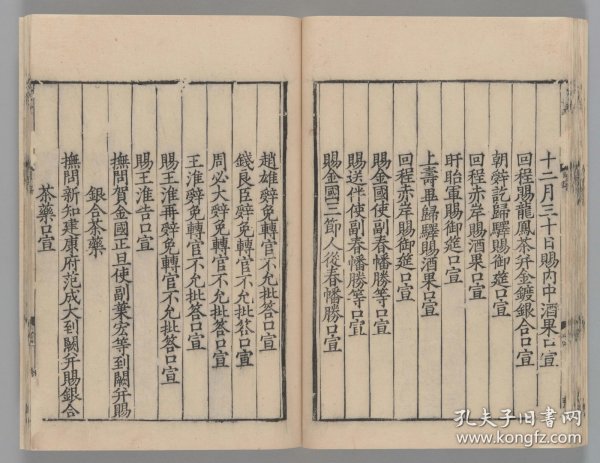 十二月三十日賜内中酒果口宣
回程賜龍鳳茶并金鍍銀合口宣
朝辭訖歸驛賜御筵口宣
回程赤岸賜酒果口宣
盱眙軍賜御筵口宣
上壽畢歸驛賜酒果口宣
回程赤岸賜御筵口宣
賜金國使副春幡勝等口宣
賜送伴使副春幡勝等口宣
賜金國三節人從春幡勝口宣
趙雄辭免轉官不允批答口宣
錢良臣辭免轉官不允批答口宣
周必大辭免轉官不允批答口宣
王淮辭免轉官不允批答口宣
賜王淮再辭免轉官不允批答口宣
賜王淮告口宣
撫問賀金國正旦使副葉宏等到闕并賜
銀合茶藥
撫問新知建康府范成大到闕并賜銀合
茶藥口宣
孔夫子旧书网
www.kongfz.com